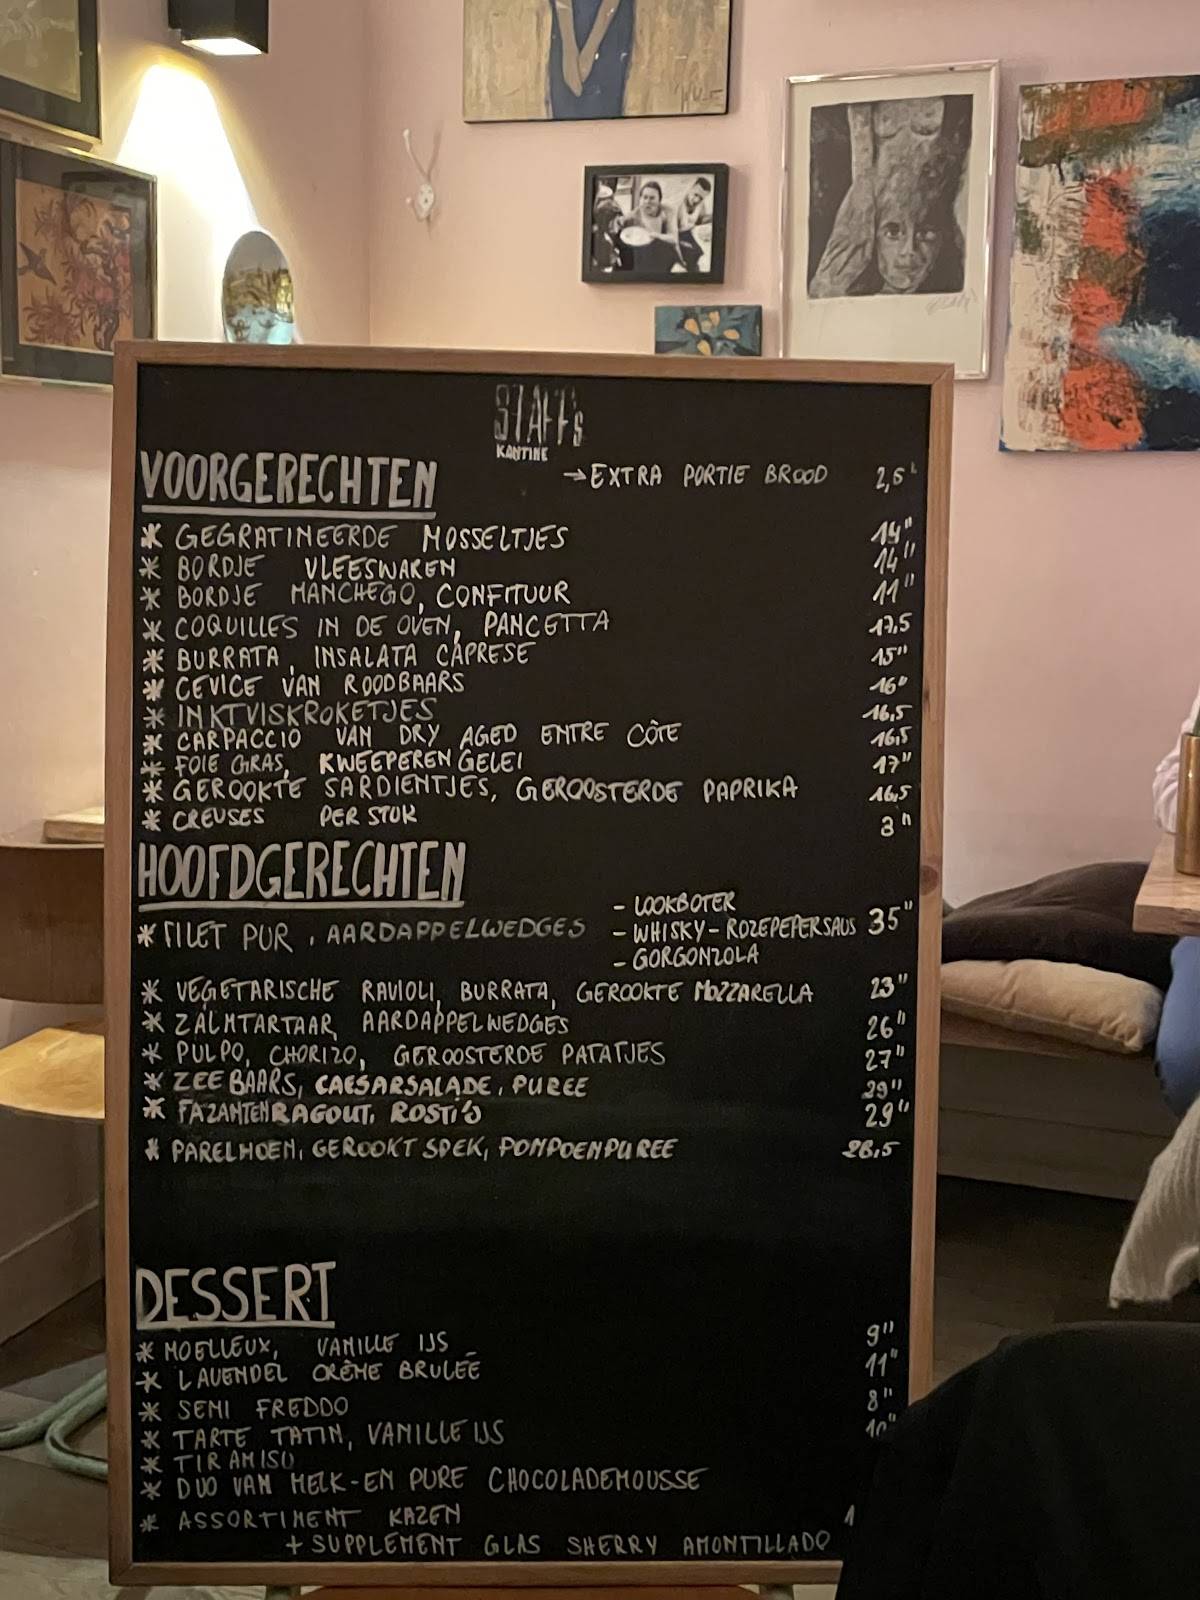 STAFF's
KANTINE
VOORGERECHTEN
→ EXTRA PORTIE BROOD 2,5
* GEGRATINEERDE MOSSELTJES 14"
* BORDJE VLEESWAREN 14"
* BORDJE MANCHEGO, CONFITUUR 11"
* COQUILLES IN DE OVEN, PANCETTA 17,5
* BURRATA, INSALATA CAPRESE 15"
* CEVICE VAN ROODBAARS 16"
* INKTVISKROKETJES 16,5
* CARPACCIO VAN DRY AGED ENTRE CÔTE 16,5
* FOIE GRAS, KWEEPEREN GELEI 17"
* GEROOKTE SARDIENTJES, GEROOSTERDE PAPRIKA 16,5
* CREUSES PER STUK 3"
HOOFDGERECHTEN
- LOOKBOTER
* FILET PUR, AARDAPPELWEDGES - WHISKY-ROZEPEPERSAUS 35"
- GORGONZOLA
* VEGETARISCHE RAVIOLI, BURRATA, GEROOKTE MOZZARELLA 23"
* ZALMTARTAAR, AARDAPPELWEDGES 26"
* PULPO, CHORIZO, GEROOSTERDE PATATJES 27"
* ZEEBAARS, CAESARSALADE, PUREE 29"
* FAZANTENRAGOUT, ROSTI'S 29"
* PARELHOEN, GEROOKT SPEK, POMPOENPUREE 28,5
DESSERT
* MOELLEUX, VANILLE IJS 9"
* LAVENDEL CRÈME BRULEE 11"
* SEMI FREDDO 8"
* TARTE TATIN, VANILLE IJS 10"
* TIRAMISU
* DUO VAN MELK-EN PURE CHOCOLADEMOUSSE
* ASSORTIMENT KAZEN 1
+ SUPPLEMENT GLAS SHERRY AMONTILLADO